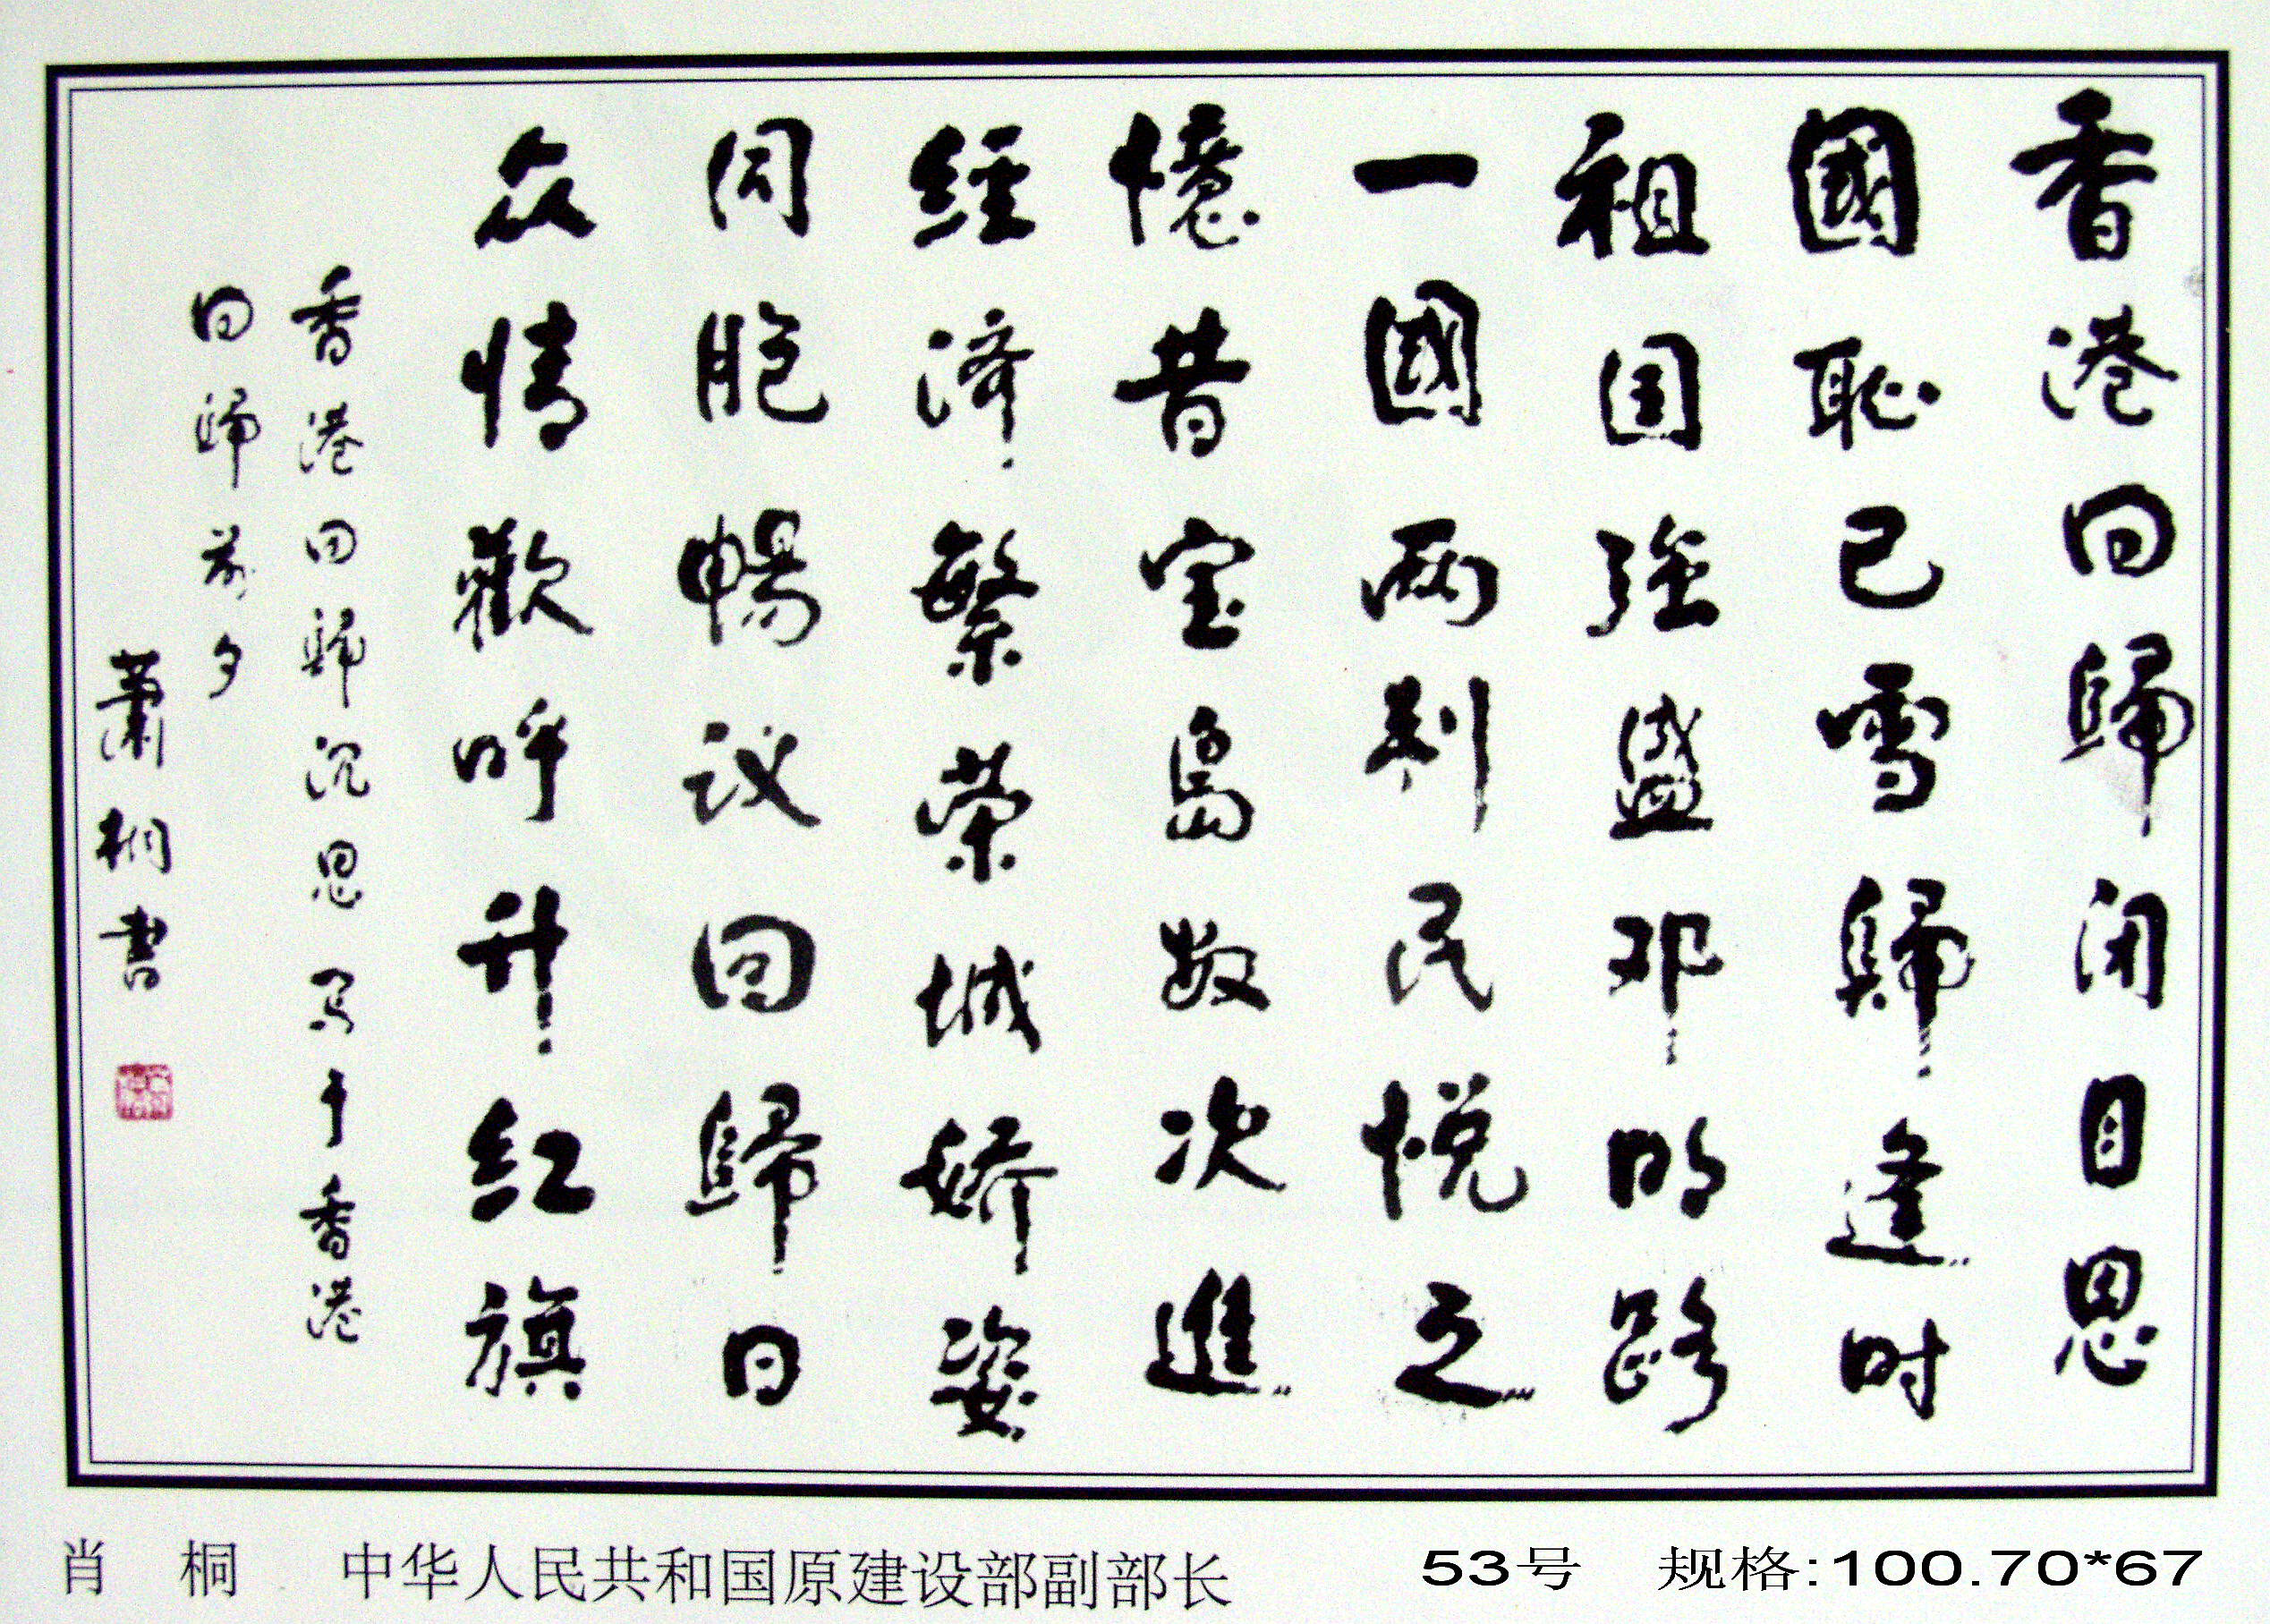 香港回歸闭目思
國恥已雪歸逢时
祖国強盛邓明路
一國两制民悦之
憶昔宝島数次進
経济繁荣城娇姿
同胞暢议回歸日
众情歡呼升红旗
香港回歸沉思写于香港
回歸前夕
蕭桐書
肖 桐 中华人民共和国原建设部副部长 53号 规格:100.70*67